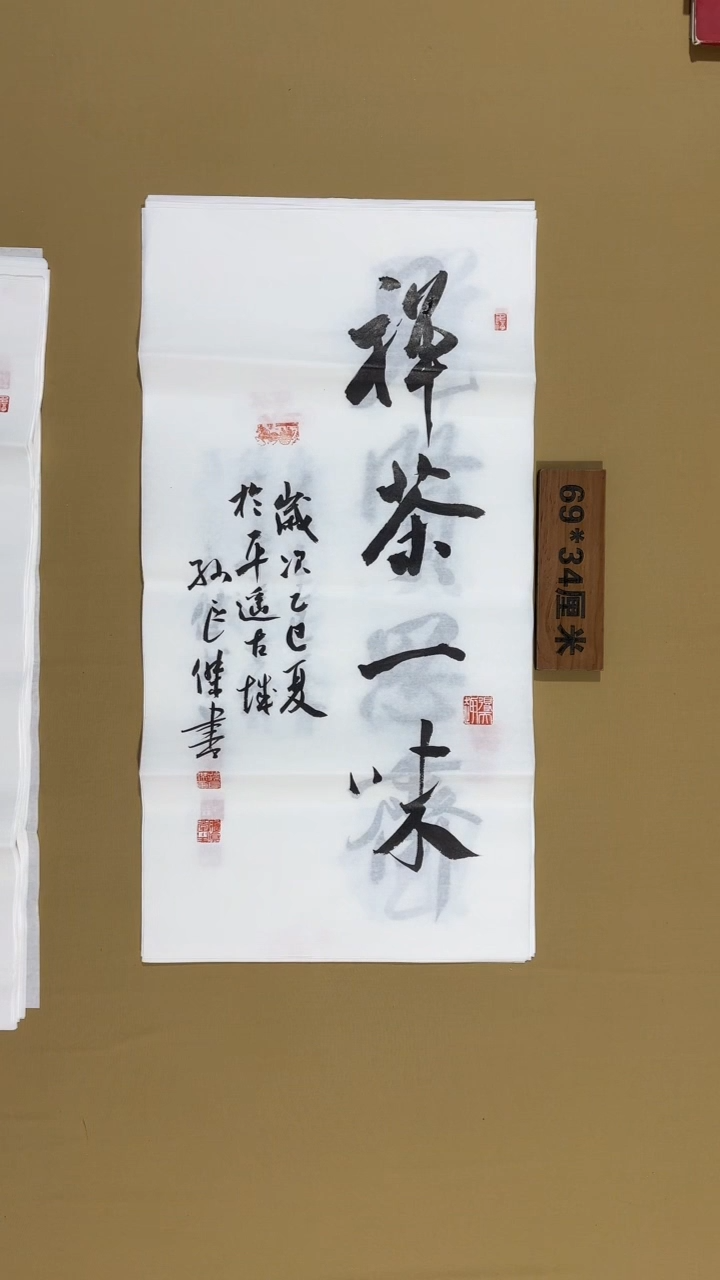 禅茶一味
歲次乙巳夏
於平遥古城
孙正傑書
69*34厘米